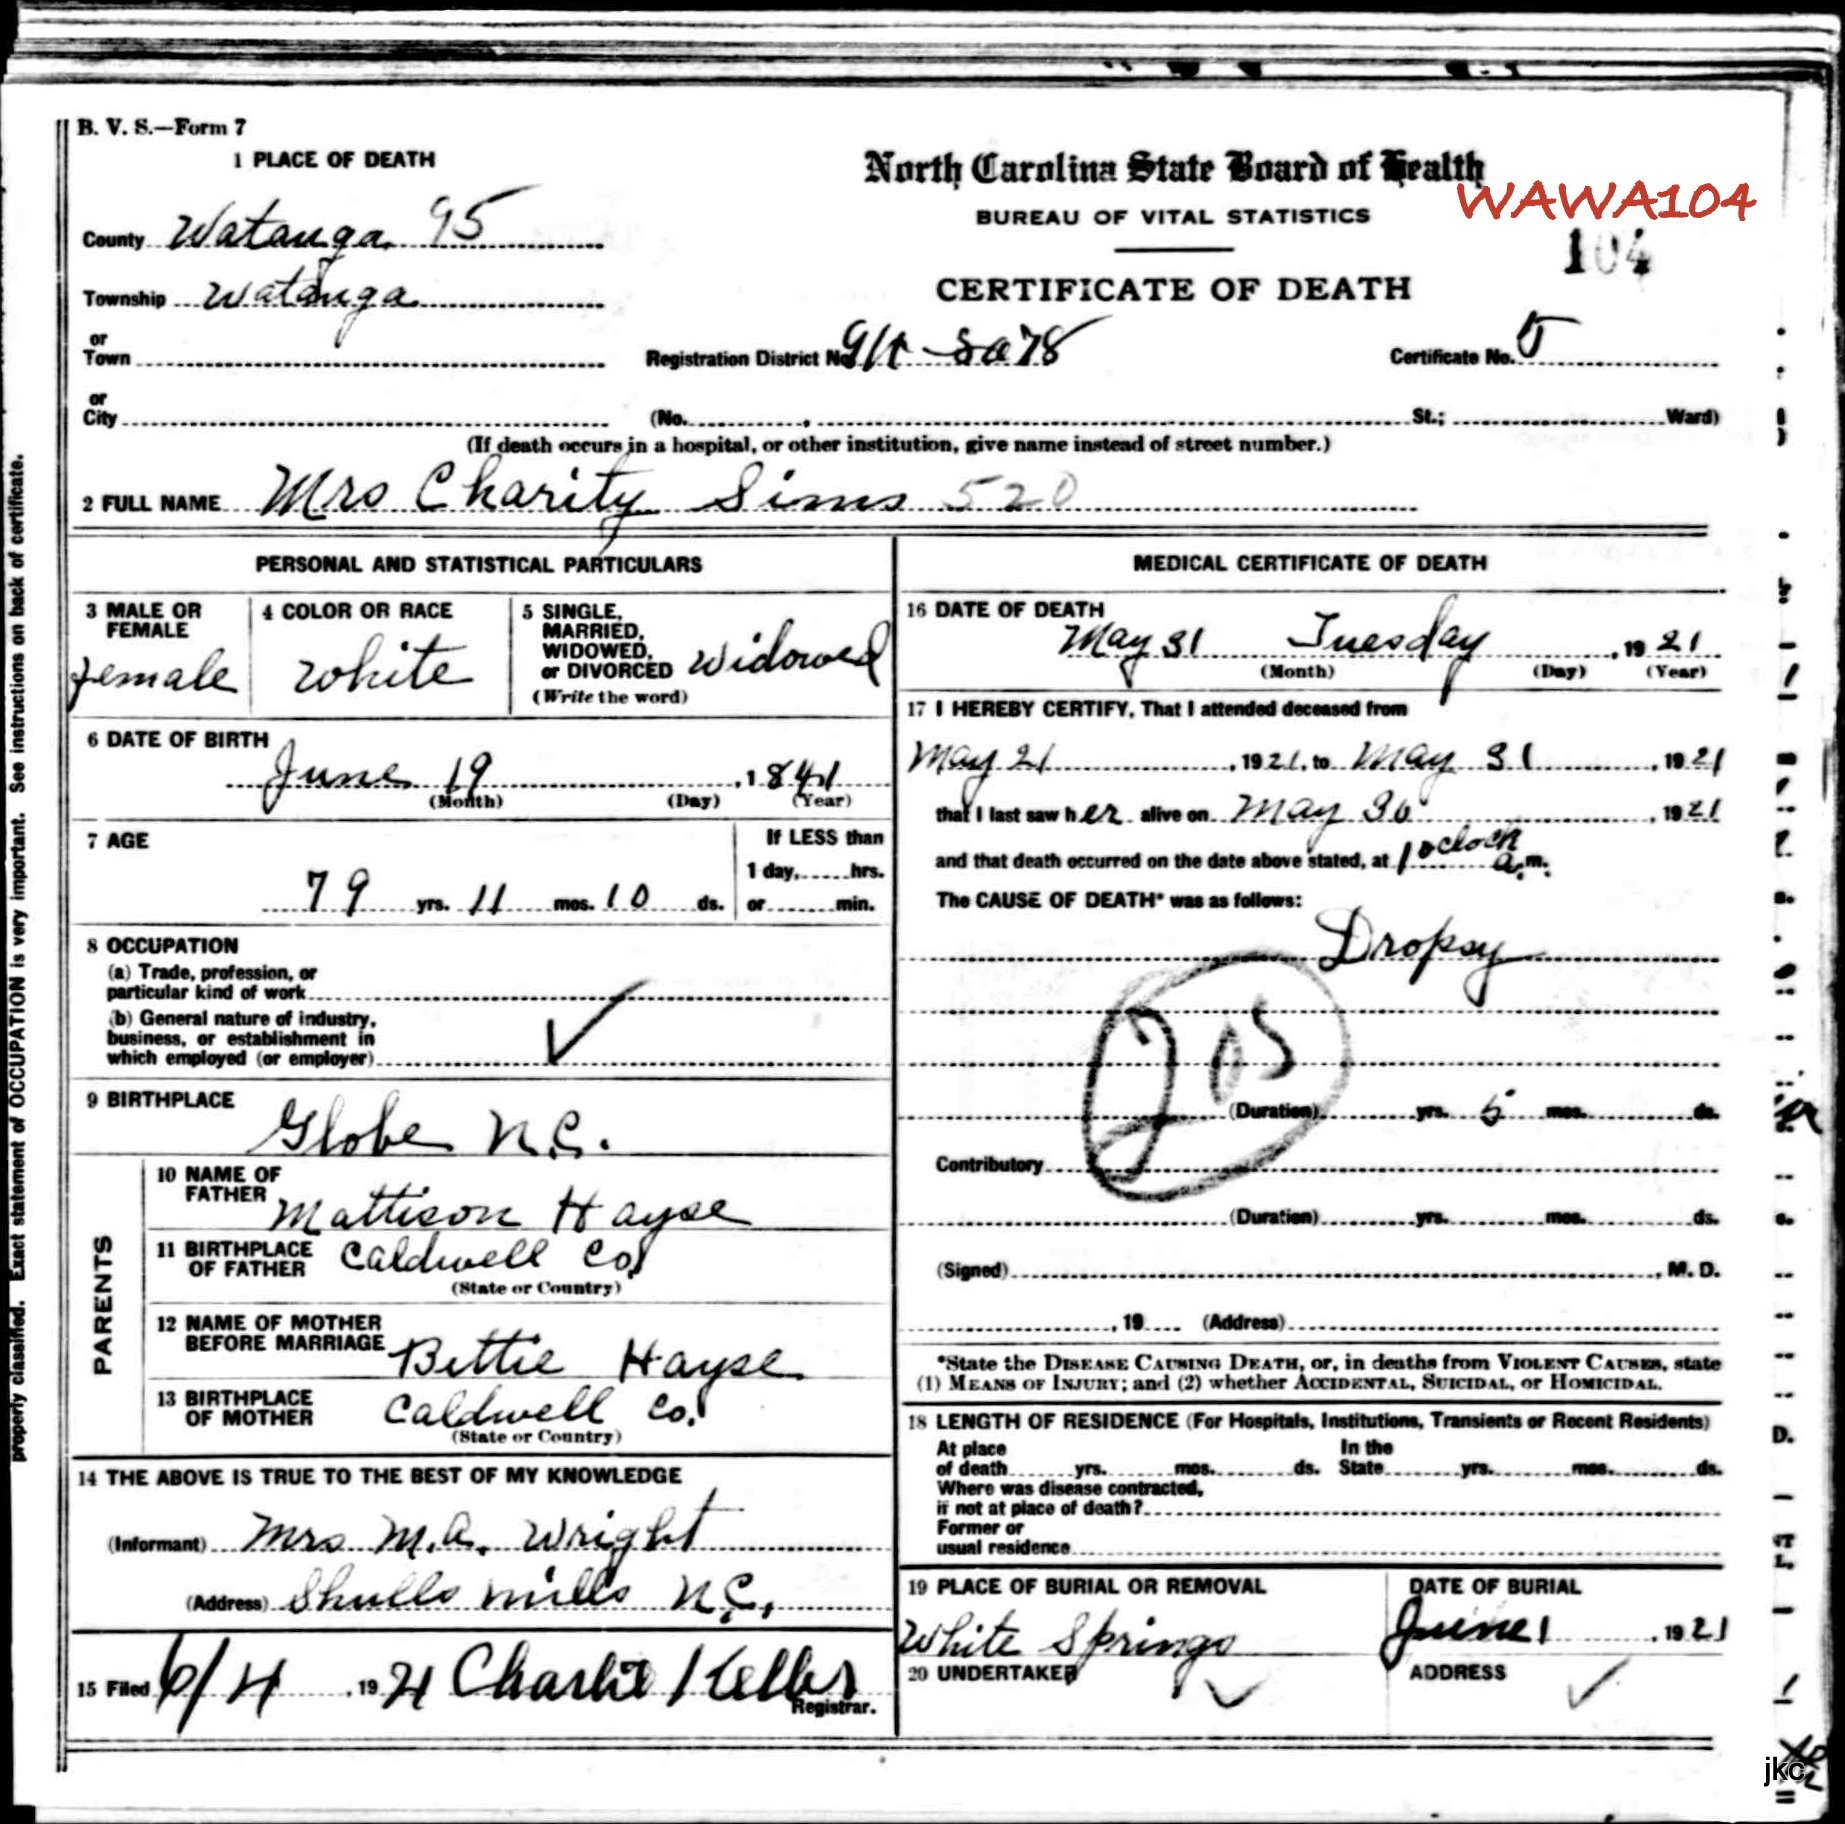 B. V. S.—Form 7
1 PLACE OF DEATH
North Carolina State Board of Health
WAWA104
BUREAU OF VITAL STATISTICS
104
County Watauga 95
CERTIFICATE OF DEATH
Township Watauga
or
Town
Registration District No.
Certificate No. 5
or
City (No. , St.; Ward)
(If death occurs in a hospital, or other institution, give name instead of street number.)
2 FULL NAME Mrs Charity Sims 520
PERSONAL AND STATISTICAL PARTICULARS
3 MALE OR
FEMALE
female
4 COLOR OR RACE
White
5 SINGLE,
MARRIED,
WIDOWED,
or DIVORCED
(Write the word)
Widowed
6 DATE OF BIRTH
June 19 , 1841
(Month) (Day) (Year)
7 AGE
79 yrs. 11 mos. 10 ds.
If LESS than
1 day,......hrs.
or........min.
8 OCCUPATION
(a) Trade, profession, or
particular kind of work
(b) General nature of industry,
business, or establishment in
which employed (or employer)
9 BIRTHPLACE
Globe N.C.
PARENTS
10 NAME OF
FATHER
Mattison Hayse
11 BIRTHPLACE
OF FATHER
Caldwell Co.
(State or Country)
12 NAME OF MOTHER
BEFORE MARRIAGE
Bettie Hayse
13 BIRTHPLACE
OF MOTHER
Caldwell Co.
(State or Country)
14 THE ABOVE IS TRUE TO THE BEST OF MY KNOWLEDGE
(Informant) Mrs M.A. Wright
(Address) Shulls mills N.C.,
15 Filed 6/4 , 1921 Charlie Keller
Registrar.
MEDICAL CERTIFICATE OF DEATH
16 DATE OF DEATH
May 31 Tuesday , 1921
(Month) (Day) (Year)
17 I HEREBY CERTIFY, That I attended deceased from
May 21 , 1921, to May 31 , 1921
that I last saw her alive on May 30 , 1921
and that death occurred on the date above stated, at 1 oclock a.m.
The CAUSE OF DEATH* was as follows:
Dropsy
205
(Duration) yrs. 5 mos. ds.
Contributory
(Duration) yrs. mos. ds.
(Signed) , M. D.
, 19 (Address)
*State the DISEASE CAUSING DEATH, or, in deaths from VIOLENT CAUSES, state
(1) MEANS OF INJURY; and (2) whether ACCIDENTAL, SUICIDAL, or HOMICIDAL.
18 LENGTH OF RESIDENCE (For Hospitals, Institutions, Transients or Recent Residents)
At place
of death yrs. mos. ds.
In the
State yrs. mos. ds.
Where was disease contracted,
if not at place of death?
Former or
usual residence
19 PLACE OF BURIAL OR REMOVAL
White Springs
DATE OF BURIAL
June 1 , 1921
20 UNDERTAKER
ADDRESS
properly classified. Exact statement of OCCUPATION is very important. See instructions on back of certificate.
jkc